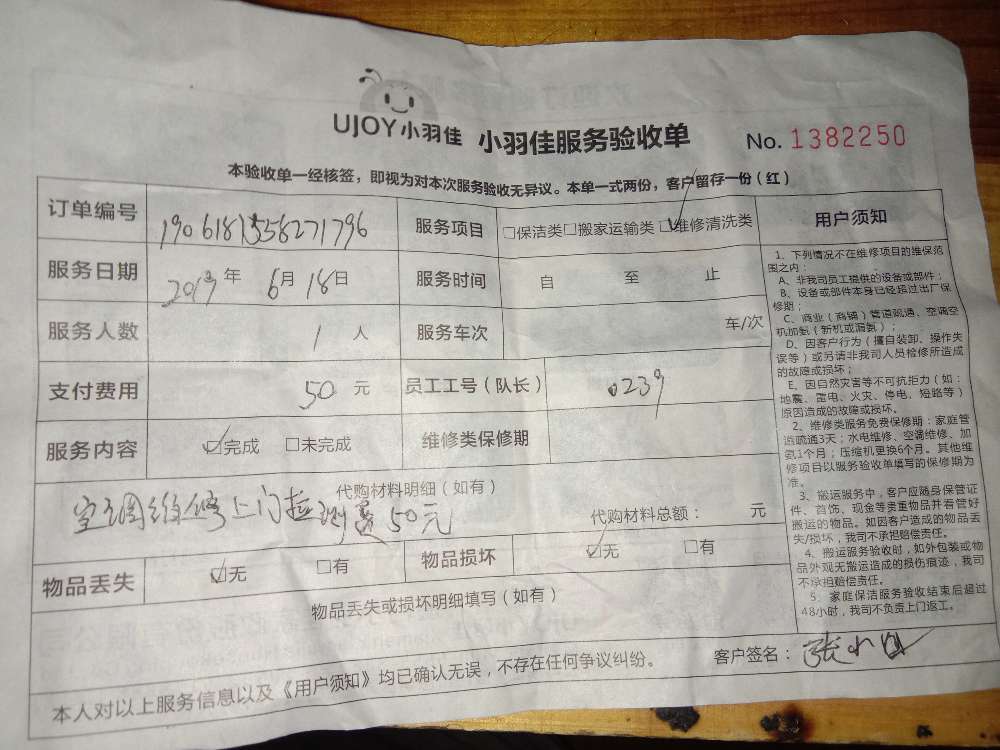 UJOY小羽佳 小羽佳服务验收单 No. 1382250
本验收单一经核签，即视为对本次服务验收无异议。本单一式两份，客户留存一份（红）
订单编号 服务项目 □保洁类□搬家运输类☑维修清洗类
服务日期 2019年 6月 18日 服务时间 自 至 止
服务人数 1 人 服务车次 车/次
支付费用 50 元 员工工号（队长） 0239
服务内容 ☑完成 □未完成 维修类保修期
代购材料明细（如有）
空调维修上门检测费50元
代购材料总额： 元
物品丢失 ☑无 □有 物品损坏 ☑无 □有
物品丢失或损坏明细填写（如有）
本人对以上服务信息以及《用户须知》均已确认无误，不存在任何争议纠纷。 客户签名：
用户须知
1、下列情况不在维修项目的维保范
围之内：
A、非我司员工提供的设备或部件；
B、设备或部件本身已经超过出厂保
修期；
C、商业（商铺）管道疏通、空调空
机加氨（新机或漏氨）；
D、因客户行为（擅自装卸、操作失
误等）或另请非我司人员检修所造成
的故障或损坏；
E、因自然灾害等不可抗拒力（如：
地震、雷电、火灾、停电、短路等）
原因造成的故障或损坏。
2、维修类服务免费保修期：家庭管
道疏通3天；水电维修、空调维修、加
氨1个月；压缩机更换6个月。其他维
修项目以服务验收单填写的保修期为
准。
3、搬运服务中，客户应随身保管证
件、首饰、现金等贵重物品并看管好
搬运的物品。如因客户造成的物品丢
失/损坏，我司不承担赔偿责任。
4、搬运服务验收时，如外包装或物
品外观无搬运造成的损伤痕迹，我司
不承担赔偿责任。
5、家庭保洁服务验收结束后超过
48小时，我司不负责上门返工。